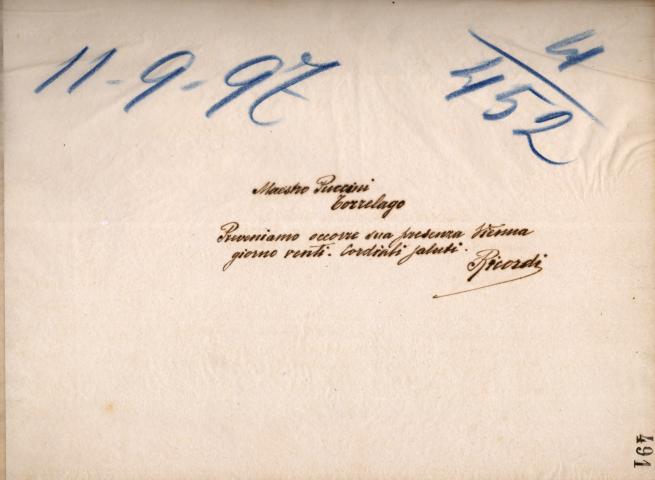 11-9-97
4/452
Maestro Puccini
Torrelago
Preveniamo occorre sua presenza Vienna
giorno venti. Cordiali saluti.
Ricordi
491